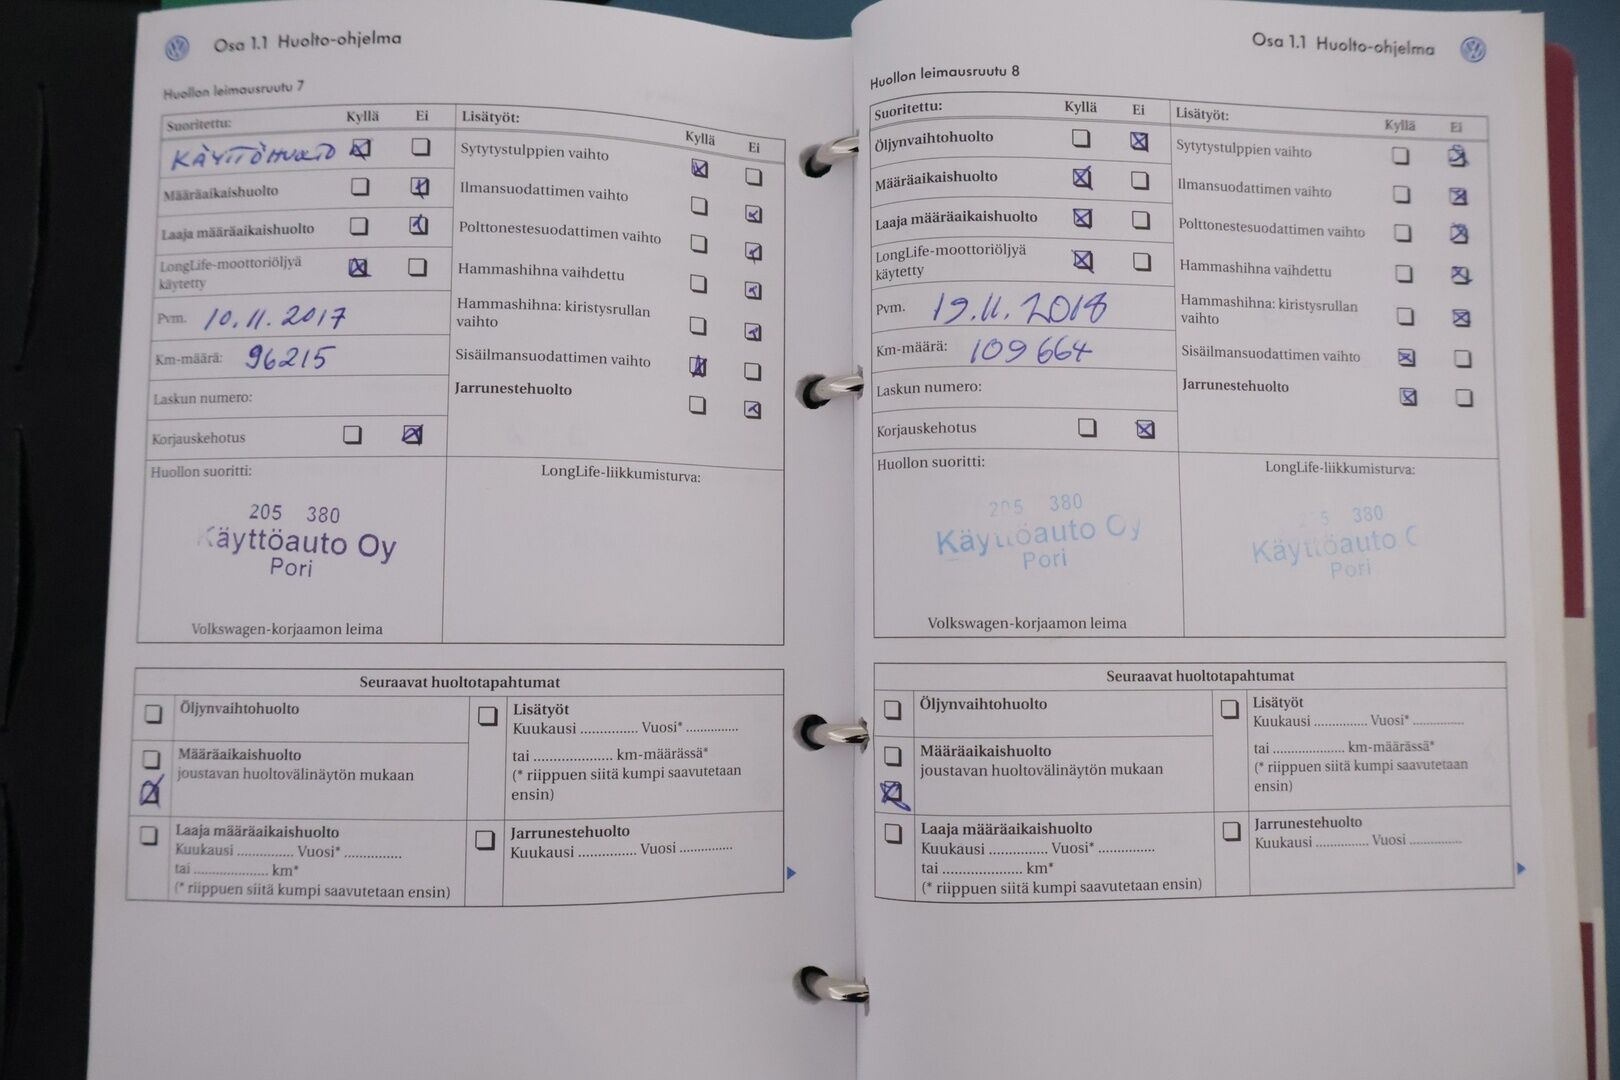 Osa 1.1 Huolto-ohjelma
Huollon leimausruutu 7
Suoritettu: Kyllä Ei
KÄYTTÖHUOLTO
Määräaikaishuolto
Laaja määräaikaishuolto
LongLife-moottoriöljyä
käytetty
Pvm. 10.11.2017
Km-määrä: 96215
Laskun numero:
Korjauskehotus
Lisätyöt:
Kyllä Ei
Sytytystulppien vaihto
Ilmansuodattimen vaihto
Polttonestesuodattimen vaihto
Hammashihna vaihdettu
Hammashihna: kiristysrullan
vaihto
Sisäilmansuodattimen vaihto
Jarrunestehuolto
Huollon suoritti:
205 380
Käyttöauto Oy
Pori
Volkswagen-korjaamon leima
LongLife-liikkumisturva:
Seuraavat huoltotapahtumat
Öljynvaihtohuolto
Määräaikaishuolto
joustavan huoltovälinäytön mukaan
Laaja määräaikaishuolto
Kuukausi .............. Vuosi* ..............
tai .................... km*
(* riippuen siitä kumpi saavutetaan ensin)
Lisätyöt
Kuukausi .............. Vuosi* .............
tai .................... km-määrässä*
(* riippuen siitä kumpi saavutetaan
ensin)
Jarrunestehuolto
Kuukausi .............. Vuosi .............
Osa 1.1 Huolto-ohjelma
Huollon leimausruutu 8
Suoritettu: Kyllä Ei
Öljynvaihtohuolto
Määräaikaishuolto
Laaja määräaikaishuolto
LongLife-moottoriöljyä
käytetty
Pvm. 19.11.2018
Km-määrä: 109 664
Laskun numero:
Korjauskehotus
Lisätyöt:
Kyllä Ei
Sytytystulppien vaihto
Ilmansuodattimen vaihto
Polttonestesuodattimen vaihto
Hammashihna vaihdettu
Hammashihna: kiristysrullan
vaihto
Sisäilmansuodattimen vaihto
Jarrunestehuolto
Huollon suoritti:
205 380
Käyttöauto Oy
Pori
Volkswagen-korjaamon leima
LongLife-liikkumisturva:
5 380
Käyttöauto O
Pori
Seuraavat huoltotapahtumat
Öljynvaihtohuolto
Määräaikaishuolto
joustavan huoltovälinäytön mukaan
Laaja määräaikaishuolto
Kuukausi .............. Vuosi* ..............
tai .................... km*
(* riippuen siitä kumpi saavutetaan ensin)
Lisätyöt
Kuukausi .............. Vuosi* .............
tai .................... km-määrässä*
(* riippuen siitä kumpi saavutetaan
ensin)
Jarrunestehuolto
Kuukausi .............. Vuosi .............